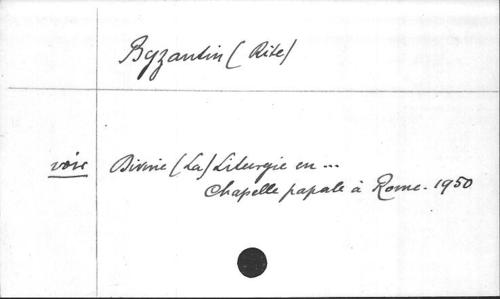 Byzantin (Rite)
voir Divine (La) Liturgie en ...
Chapelle papale à Rome. 1950